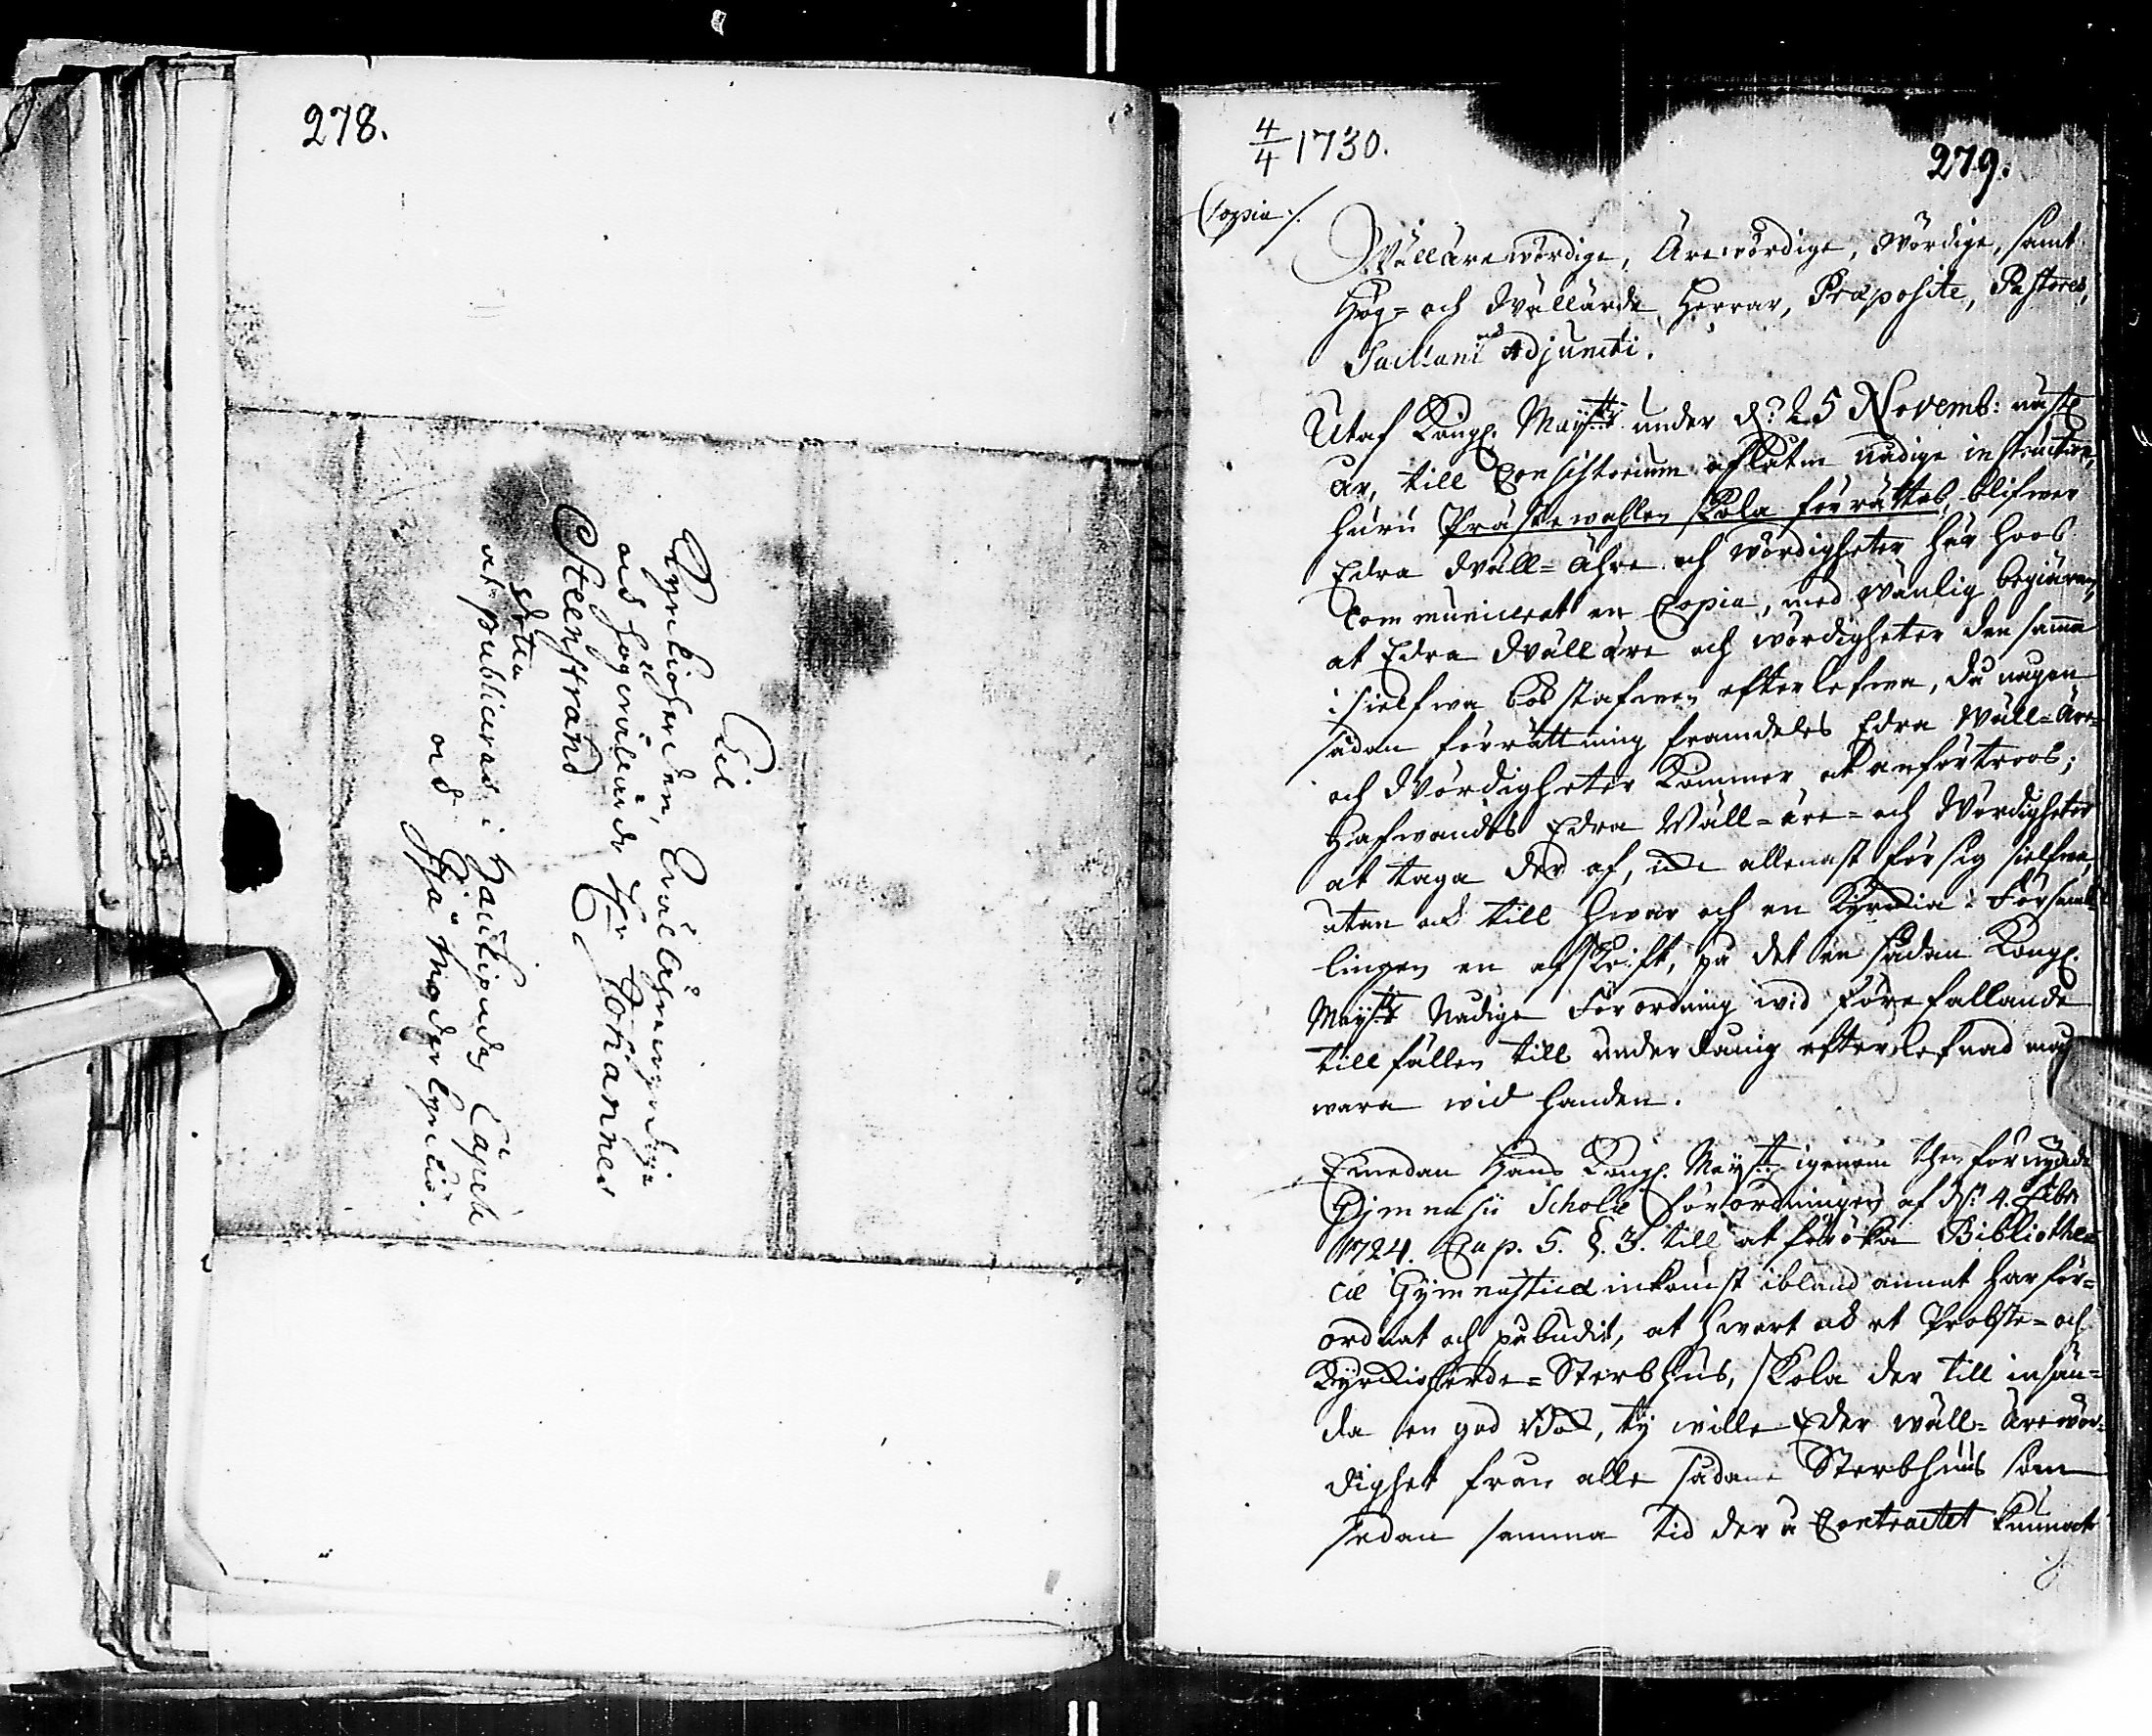 278.
Til
Kyrkioherden, Ewällährewyrdige
och Höglärde Herr Johannes
Steenstrand
detta
at publiceras i Hautipudas Capell
och
4/4 1730.
279.
Copia:/.
Wällärewördige, Ärewördige, Wördige, samt
Hög= och Wällärde Herrar, Præposite, Pastores,
Sacellani och Adjuncti.
Utaf Kongl. Mayst:tt under d: 25 Novemb: näst
år, till Consistorium aflåtne nådige instruction,
huru Prästewahlen skola förrättas, blifwer
Edra Wäll=Ähre och wördigheter här hoos
Communicerat en Copia, med wänlig begiäran,
at Edra Wälläre och wördigheter den samma
i sielfwa bokstafwen efterlefwa, då någon
sådan förrättning framdeles Edra Wäll=Äre=
och Wördigheter kommer at anförtros;
Edra Wäll=äre= och Wördigheter
at taga der af, icke allenast för sig sielfwa,
utan ock till hwar och en Kyrckia i Försam=
lingen en afskrift, på det en sådan Kongl.
Mayst:tt Nådige Förordning wid förefallande
tillfällen till underdånig efterlefnad må
wara wid handen.
Emedan Hans Kongl. Mayst:tt igenom then förnyade
Gymnasii Scholæ förordningen af d: 4. Feb:
1724. Cap. 5. §. 3. till at föröka Bibliothe=
cæ Gymnasticæ inkomst ibland annat har för=
ordnat och påbudit, at hwart och et Probste= och
Kyrkioherde=Sterbhus, skola der till insän=
da en god bok, ty wille Eder wäll=ärewör=
dighet från alle sådane Sterbhuus som
sedan samma tid der i Contractet kunnat